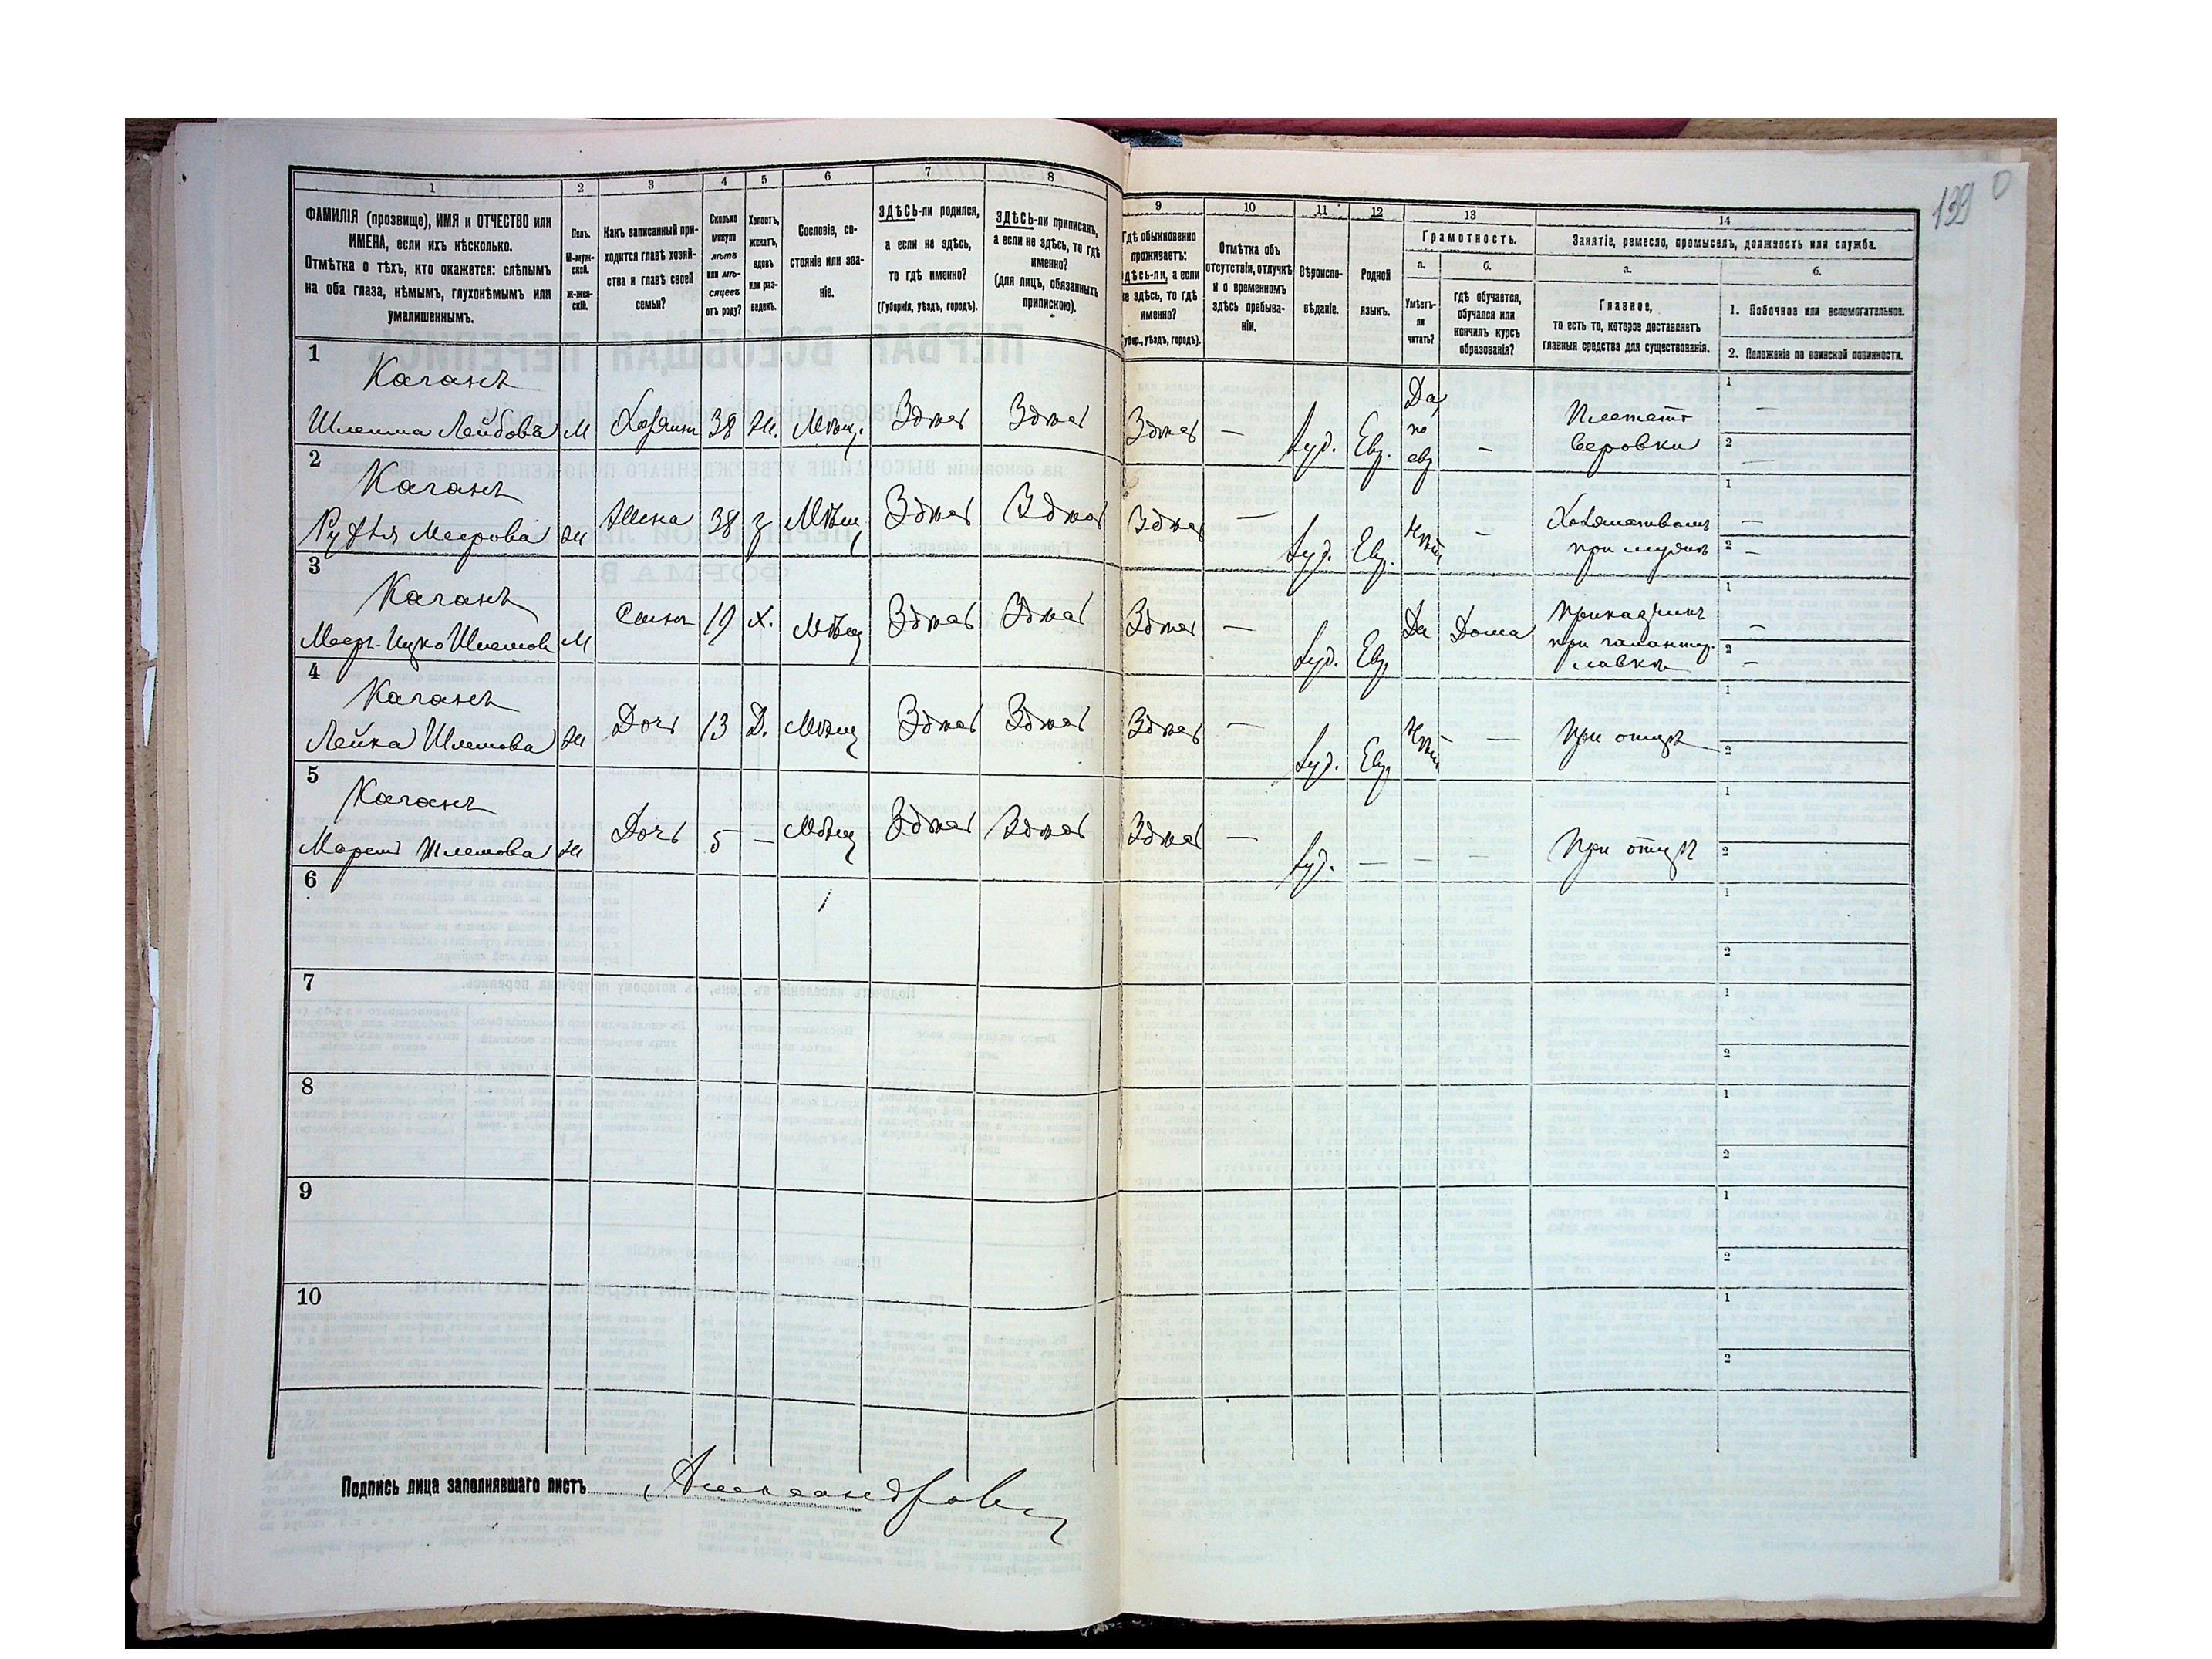 139
0
1
2
3
4
5
6
7
8
ФАМИЛІЯ (прозвище), ИМЯ и ОТЧЕСТВО или
ИМЕНА, если ихъ нѣсколько.
Отмѣтка о тѣхъ, кто окажется: слѣпымъ
на оба глаза, нѣмымъ, глухонѣмымъ или
умалишеннымъ.
Полъ.
М-муж-
ской.
Ж-жен-
скій.
Какъ записанный при-
ходится главѣ хозяй-
ства и главѣ своей
семьи?
Сколько
минуло
лѣтъ
или мѣ-
сяцевъ
отъ роду?
Холостъ,
женатъ,
вдовъ
или раз-
веденъ.
Сословіе, со-
стояніе или зва-
ніе.
ЗДѢСЬ-ли родился,
а если не здѣсь,
то гдѣ именно?
(Губернія, уѣздъ, городъ).
ЗДѢСЬ-ли приписанъ,
а если не здѣсь, то гдѣ
именно?
(для лицъ, обязанныхъ
припискою).
9
10
11
12
13
14
Гдѣ обыкновенно
проживаетъ:
здѣсь-ли, а если
не здѣсь, то гдѣ
именно?
(Губер., уѣздъ, городъ).
Отмѣтка объ
отсутствіи, отлучкѣ
и о временномъ
здѣсь пребыва-
ніи.
Вѣроиспо-
вѣданіе.
Родной
языкъ.
Грамотность.
а.
б.
Умѣетъ-
ли
читать?
гдѣ обучается,
обучался или
кончилъ курсъ
образованія?
Занятіе, ремесло, промыселъ, должность или служба.
а.
б.
Главное,
то есть то, которое доставляетъ
главныя средства для существованія.
1. Побочное или вспомогательное.
2. Положеніе по воинской повинности.
1
Каганъ
Шлема Лейбовъ М Хозяинъ 38 Ж. Мѣщ. Здѣсь Здѣсь Здѣсь — Іуд. Евр. Да, по евр — Плететъ веровки 1 — 2 —
2
Каганъ
Мееровa Ж Жена 38 З Мѣщ Здѣсь Здѣсь Здѣсь — Іуд. Евр. Нѣтъ — при мужѣ 1 — 2 —
3
Каганъ
Мееръ-Ицко Шлемов М Сынъ 19 Х. Мѣщ Здѣсь Здѣсь Здѣсь — Іуд. Евр Да Дома Приказчикъ при галантер. лавкѣ 1 — 2 —
4
Каганъ
Лейка Шлемова Ж Дочь 13 Д. Мѣщ Здѣсь Здѣсь Здѣсь — Іуд. Евр Нѣтъ — При отцѣ 1 2
5
Каганъ
Шлемова Ж Дочь 5 — Мѣщ Здѣсь Здѣсь Здѣсь — Іуд. — — — При отцѣ 1 2
6 1 2
7 1 2
8 1 2
9 1 2
10 1 2
Подпись лица заполнявшаго листъ